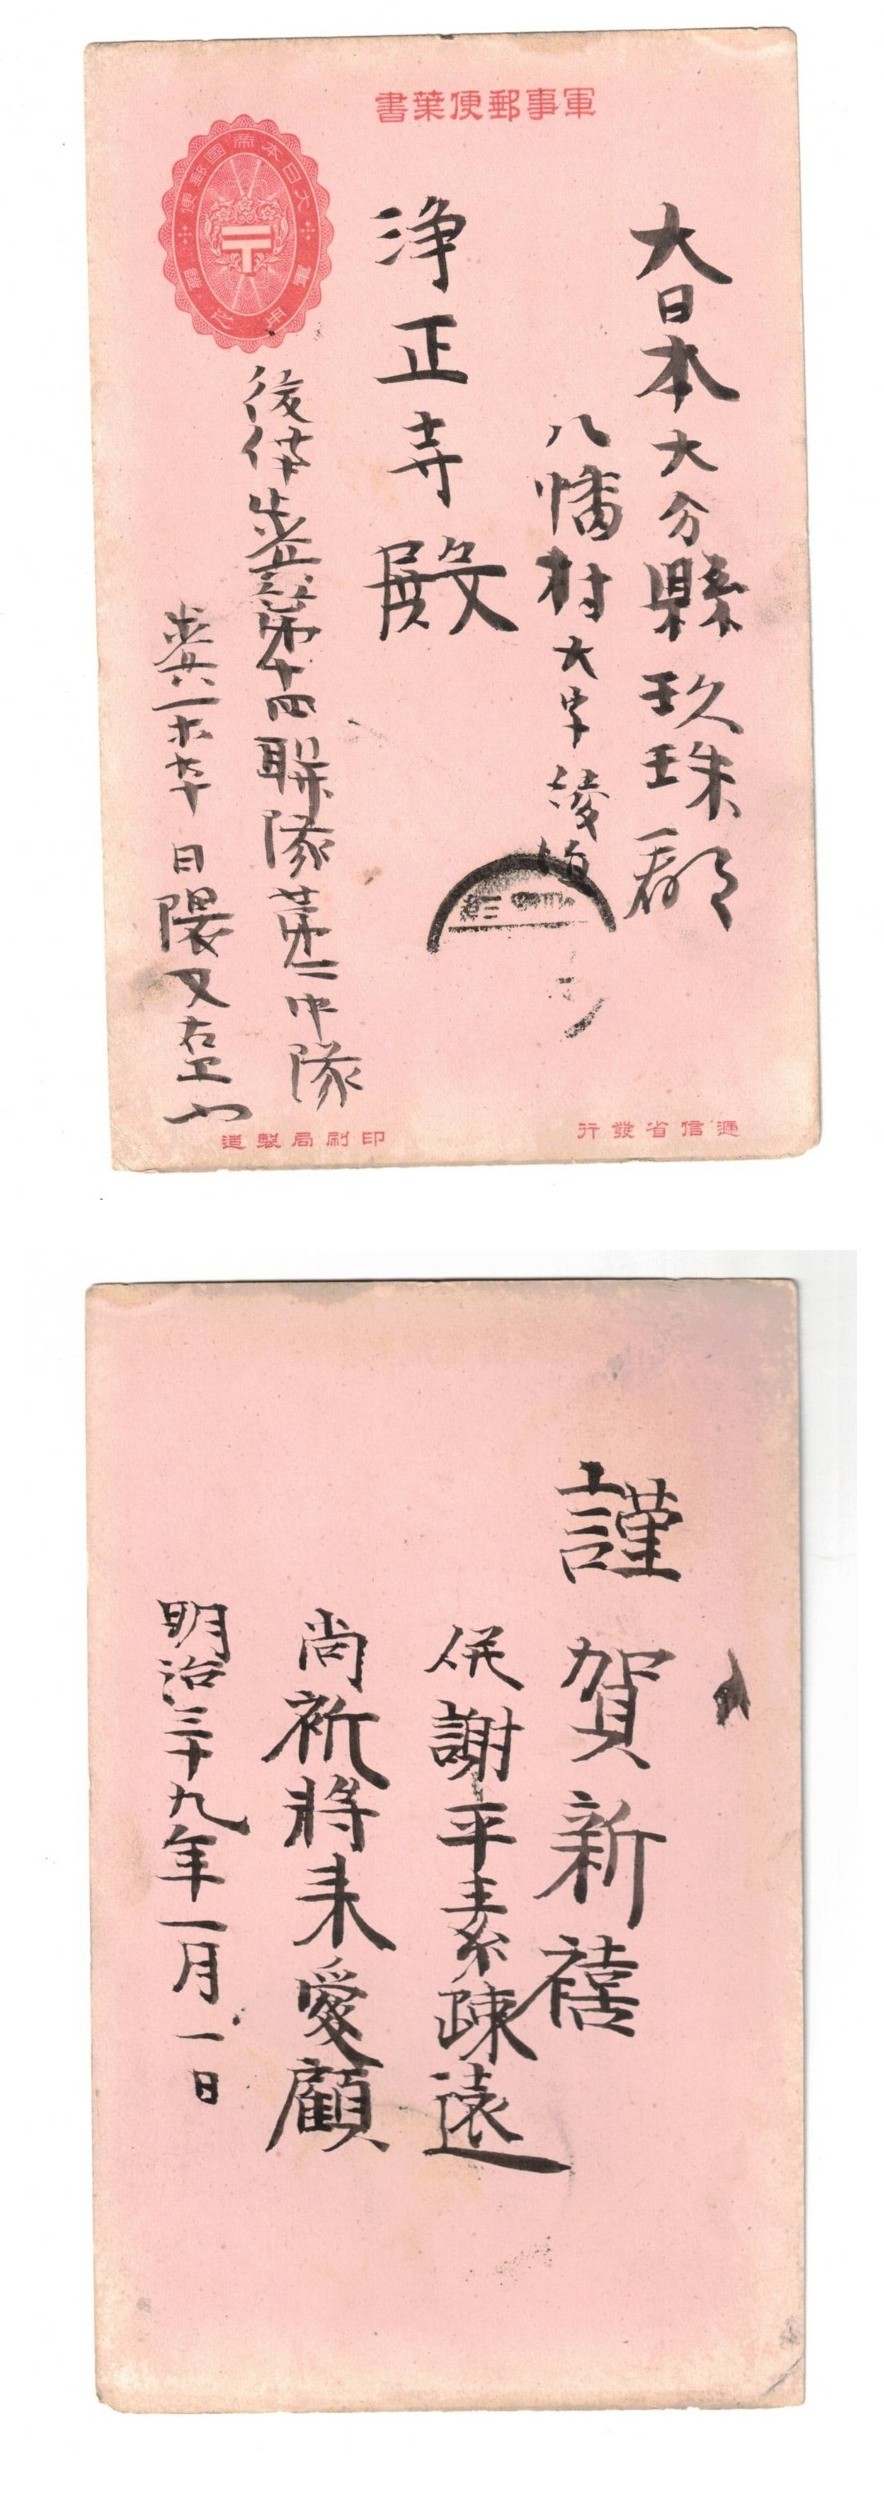 軍事郵便葉書
大日本帝國郵便
軍事
大日本大分縣玖珠郡
八幡村大字綾垣
浄正寺殿
後備歩兵第十四聯隊第二中隊
歩兵一等卒 日隈又右卫门
遞信省發行
印刷局製造
謹賀新禧
併謝平素疎遠
尚祈將来愛顧
明治三十九年一月一日